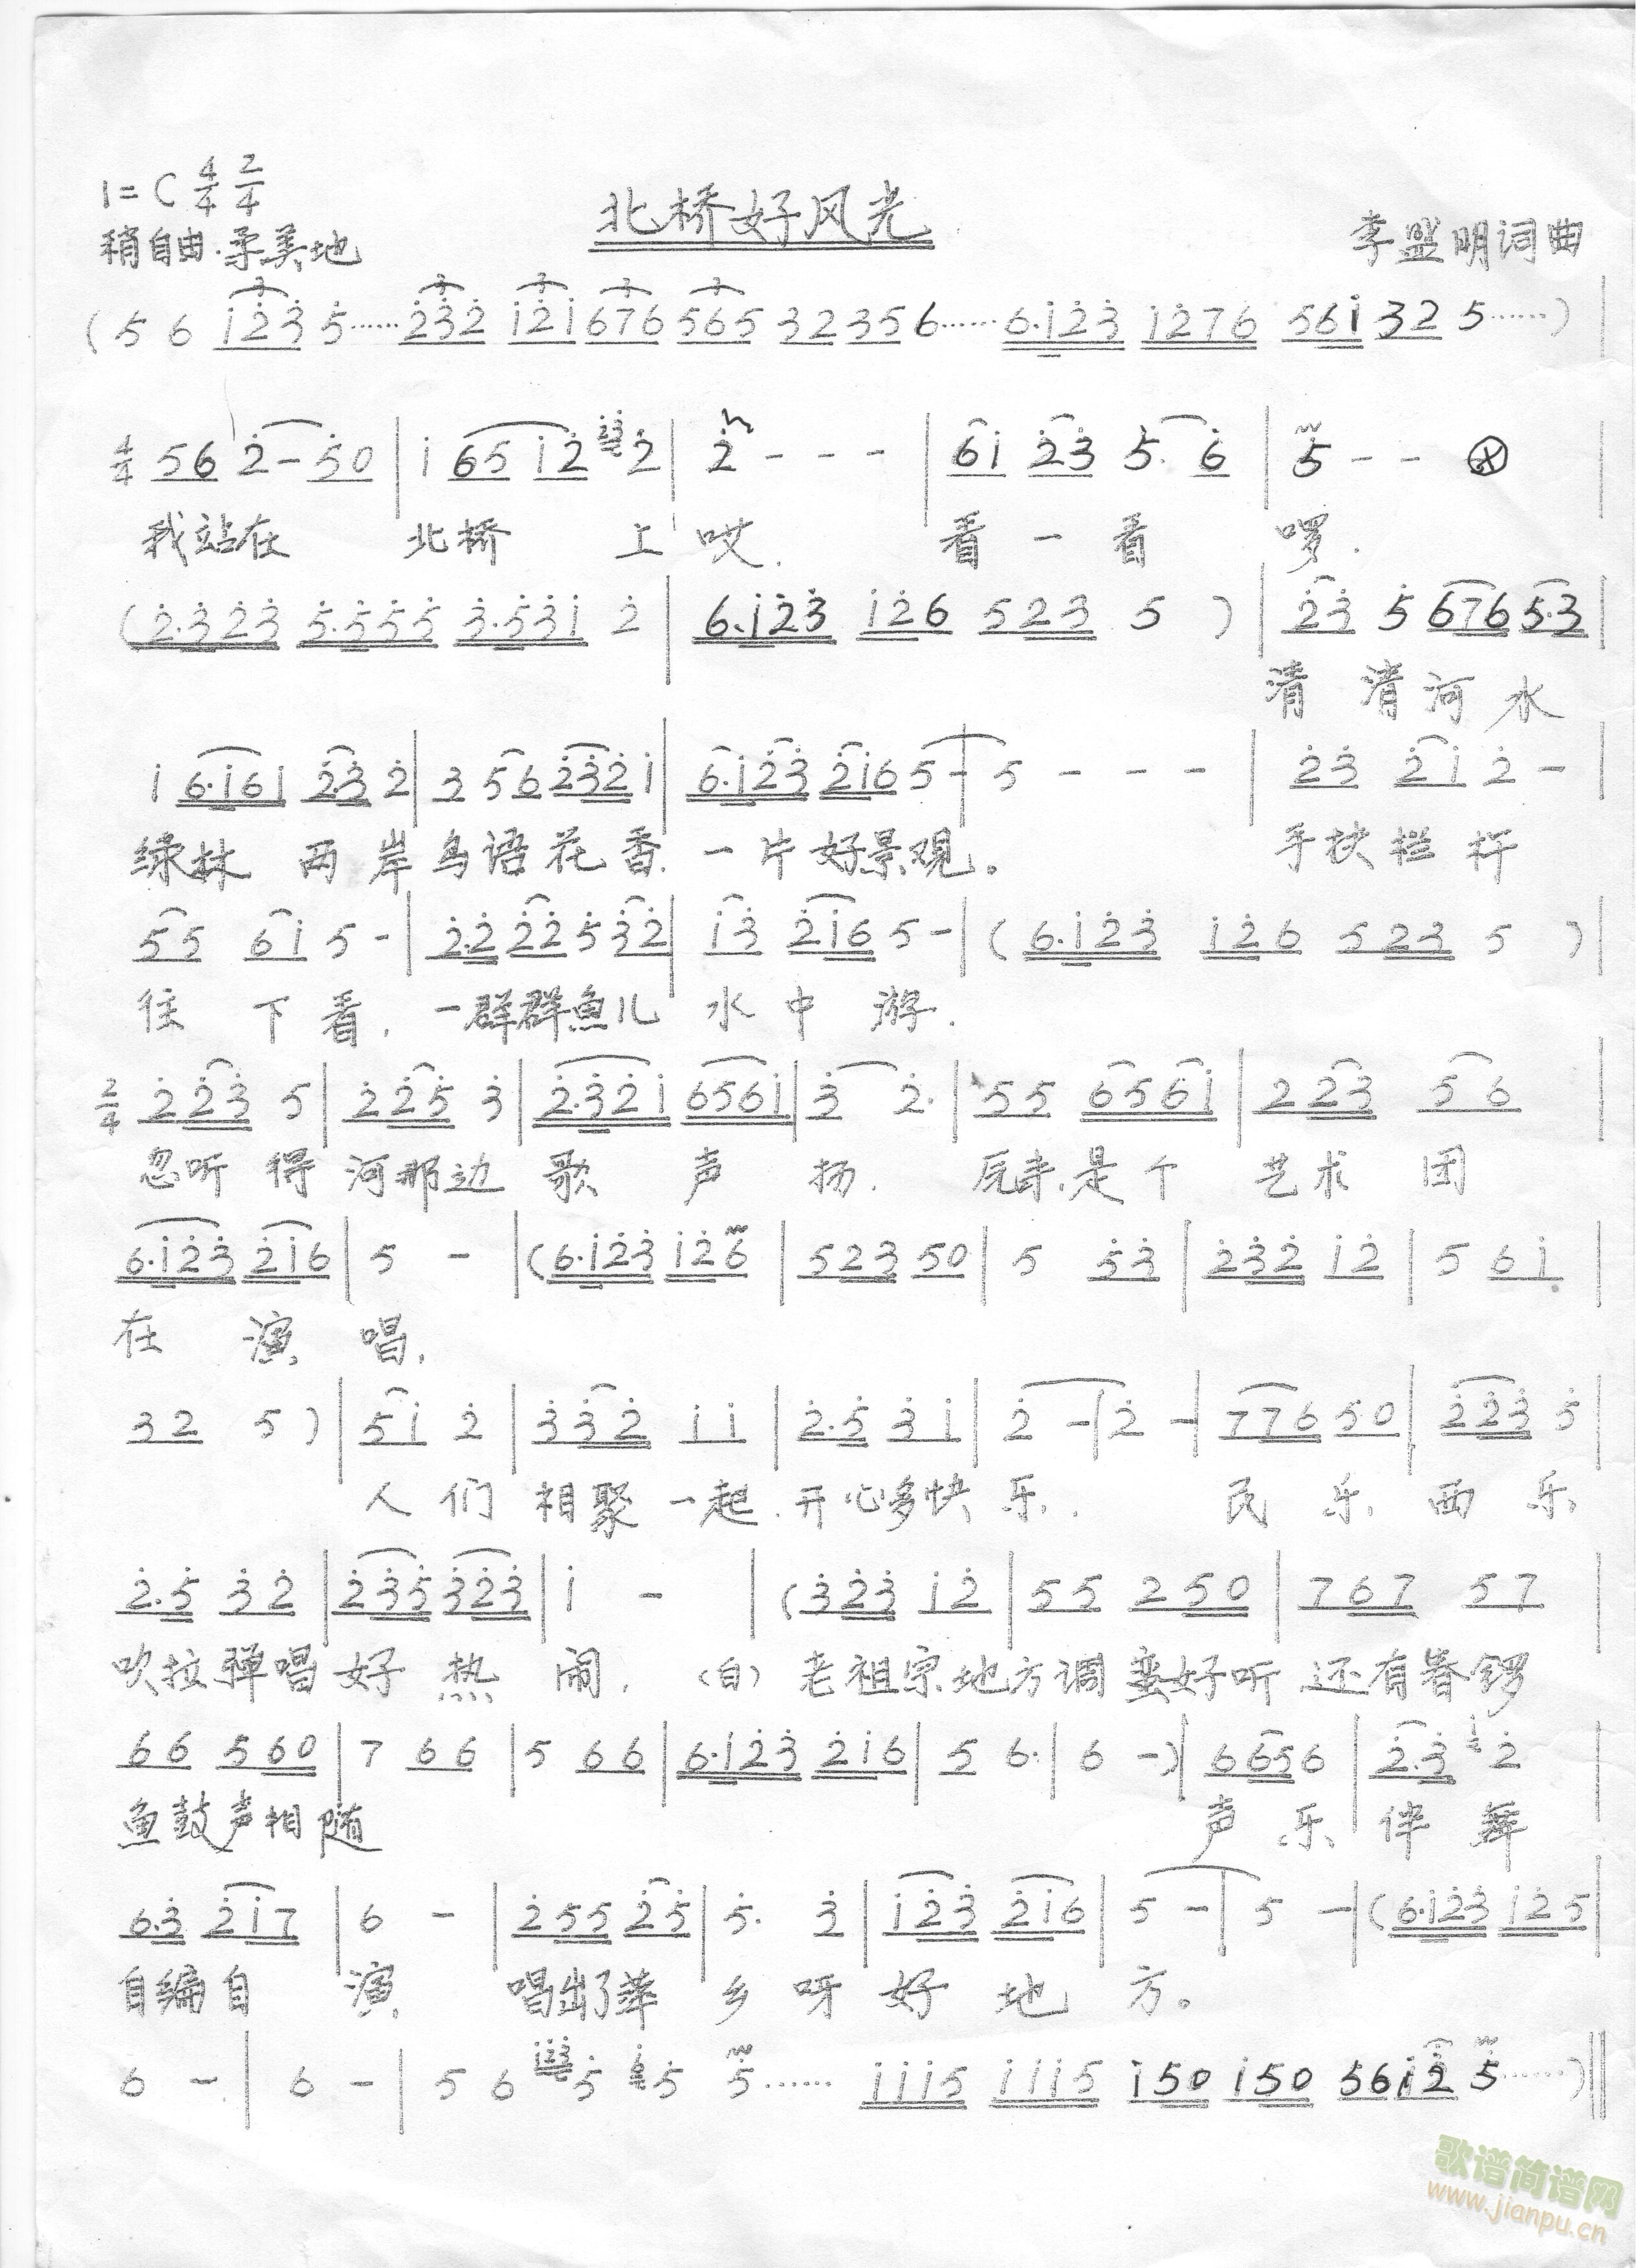 1=C 4/4 2/4
北桥好风光
稍自由.柔美地
李盟明词曲
(5 6 i̇2̇3̇ 5̇……2̇3̇2̇ i̇2̇i̇ 676 565 32 35 6……6.i̇2̇3̇ i̇276 56i̇ 32 5……)
4/4 56 2̇-5̇0 | i̇ 65 i̇2̇ 2̇3̇ 2̇ | 2̇ - - - | 6i̇ 2̇3̇ 5̇. 6̇ | 5̇ - -
我站在 北桥 上哎. 看一看 啰.
(2̇.3̇2̇3̇ 5̇.5̇5̇5̇ 3̇.5̇3̇i̇ 2̇ | 6.i̇2̇3̇ i̇2̇6 523 5 ) | 2̇3̇ 5̇ 676 5.3 |
清清河水
i̇ 6.i̇6i̇ 2̇3̇ 2̇ | 3 56 2̇3̇2̇i̇ | 6.i̇2̇3̇ 2̇i̇6 5 - | 5 - - - | 2̇3̇ 2̇i̇ 2̇ - |
绿林 两岸鸟语花香.一片好景观。 手扶栏杆
55 6i̇ 5 - | 2̇.2̇ 2̇2̇ 5̇ 3̇2̇ | i̇3̇ 2̇i̇6 5 - | (6.i̇2̇3̇ i̇2̇6 523 5 ) |
往 下看.一群群鱼儿 水中游.
2/4 2̇2̇3̇ 5 | 2̇2̇5̇ 3̇ | 2̇.3̇2̇i̇ 656i̇ | 3̇ 2̇. | 55 656i̇ | 223 56 |
忽听得河那边歌声扬. 原来.是个艺术团
6.i̇2̇3̇ 2̇i̇6 | 5 - | (6.i̇2̇3̇ i̇2̇6 | 523 50 | 5 5̇3̇ | 2̇3̇2̇ i̇2̇ | 5 6i̇ |
在演唱.
32 5 ) | 5i̇ 2̇ | 3̇3̇2̇ i̇i̇ | 2̇.5̇ 3̇i̇ | 2̇ - | 2̇ - | 776 50 | 2̇2̇3̇ 5̇ |
人们相聚一起.开心多快乐. 民乐、西乐、
2̇.5̇ 3̇2̇ | 2̇3̇5̇ 3̇2̇3̇ | i̇ - | (3̇2̇3̇ i̇2̇ | 55 250 | 767 57 |
吹拉弹唱好热闹. (白)老祖宗地方调蛮好听还有春锣
66 560 | 7 66 | 5 66 | 6.i̇2̇3̇ 2̇i̇6 | 5 6. | 6 -) | 6656 | 2̇.3̇ 2̇ |
鱼鼓声相随 声乐、伴舞
6.3̇ 2̇i̇7 | 6 - | 2̇55 2̇5̇ | 5̇. 3̇ | i̇2̇3̇ 2̇i̇6 | 5 - | 5 - | (6.i̇2̇3̇ i̇2̇5 |
自编自演、唱出了萍乡呀好地方。
6 - | 6 - | 5 6 i̇2̇3̇ 5̇ 5̇ 5̇…… i̇i̇i̇5 i̇i̇i̇5 i̇50 i̇50 56i̇2̇ 5̇……)‖
歌谱简谱网
www.jianpu.cn